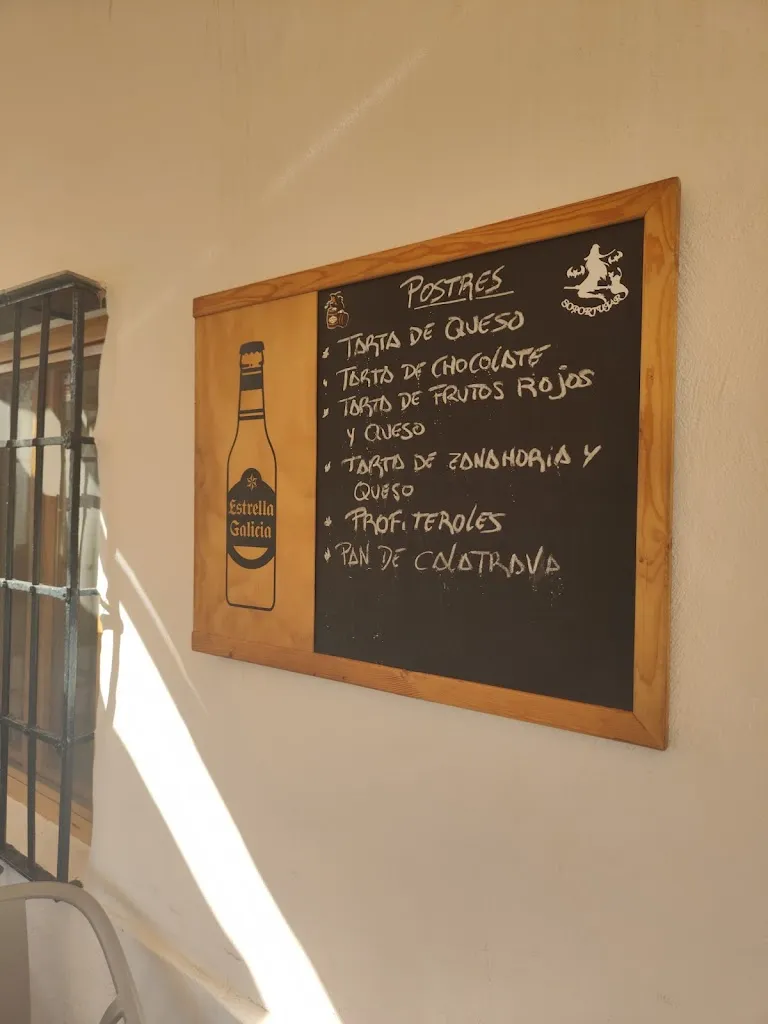 POSTRES
SOPORTUJAR
* TARTA DE QUESO
* TARTA DE CHOCOLATE
* TARTA DE FRUTOS ROJOS
Y QUESO
* TARTA DE ZANAHORIA Y
QUESO
* PROFITEROLES
* PAN DE CALATRAVA
Estrella
Galicia